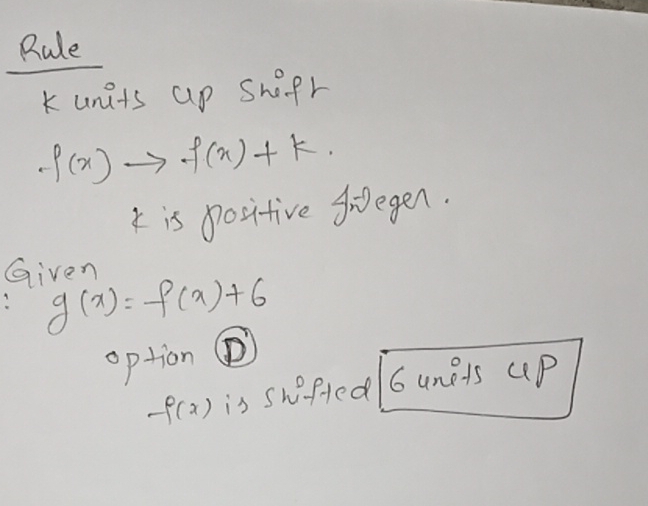 Rule
k units up shift
f(x) → f(x) + k.
k is positive Integer.
Given
: g(x) = f(x) + 6
option D
f(x) is shifted 6 units up